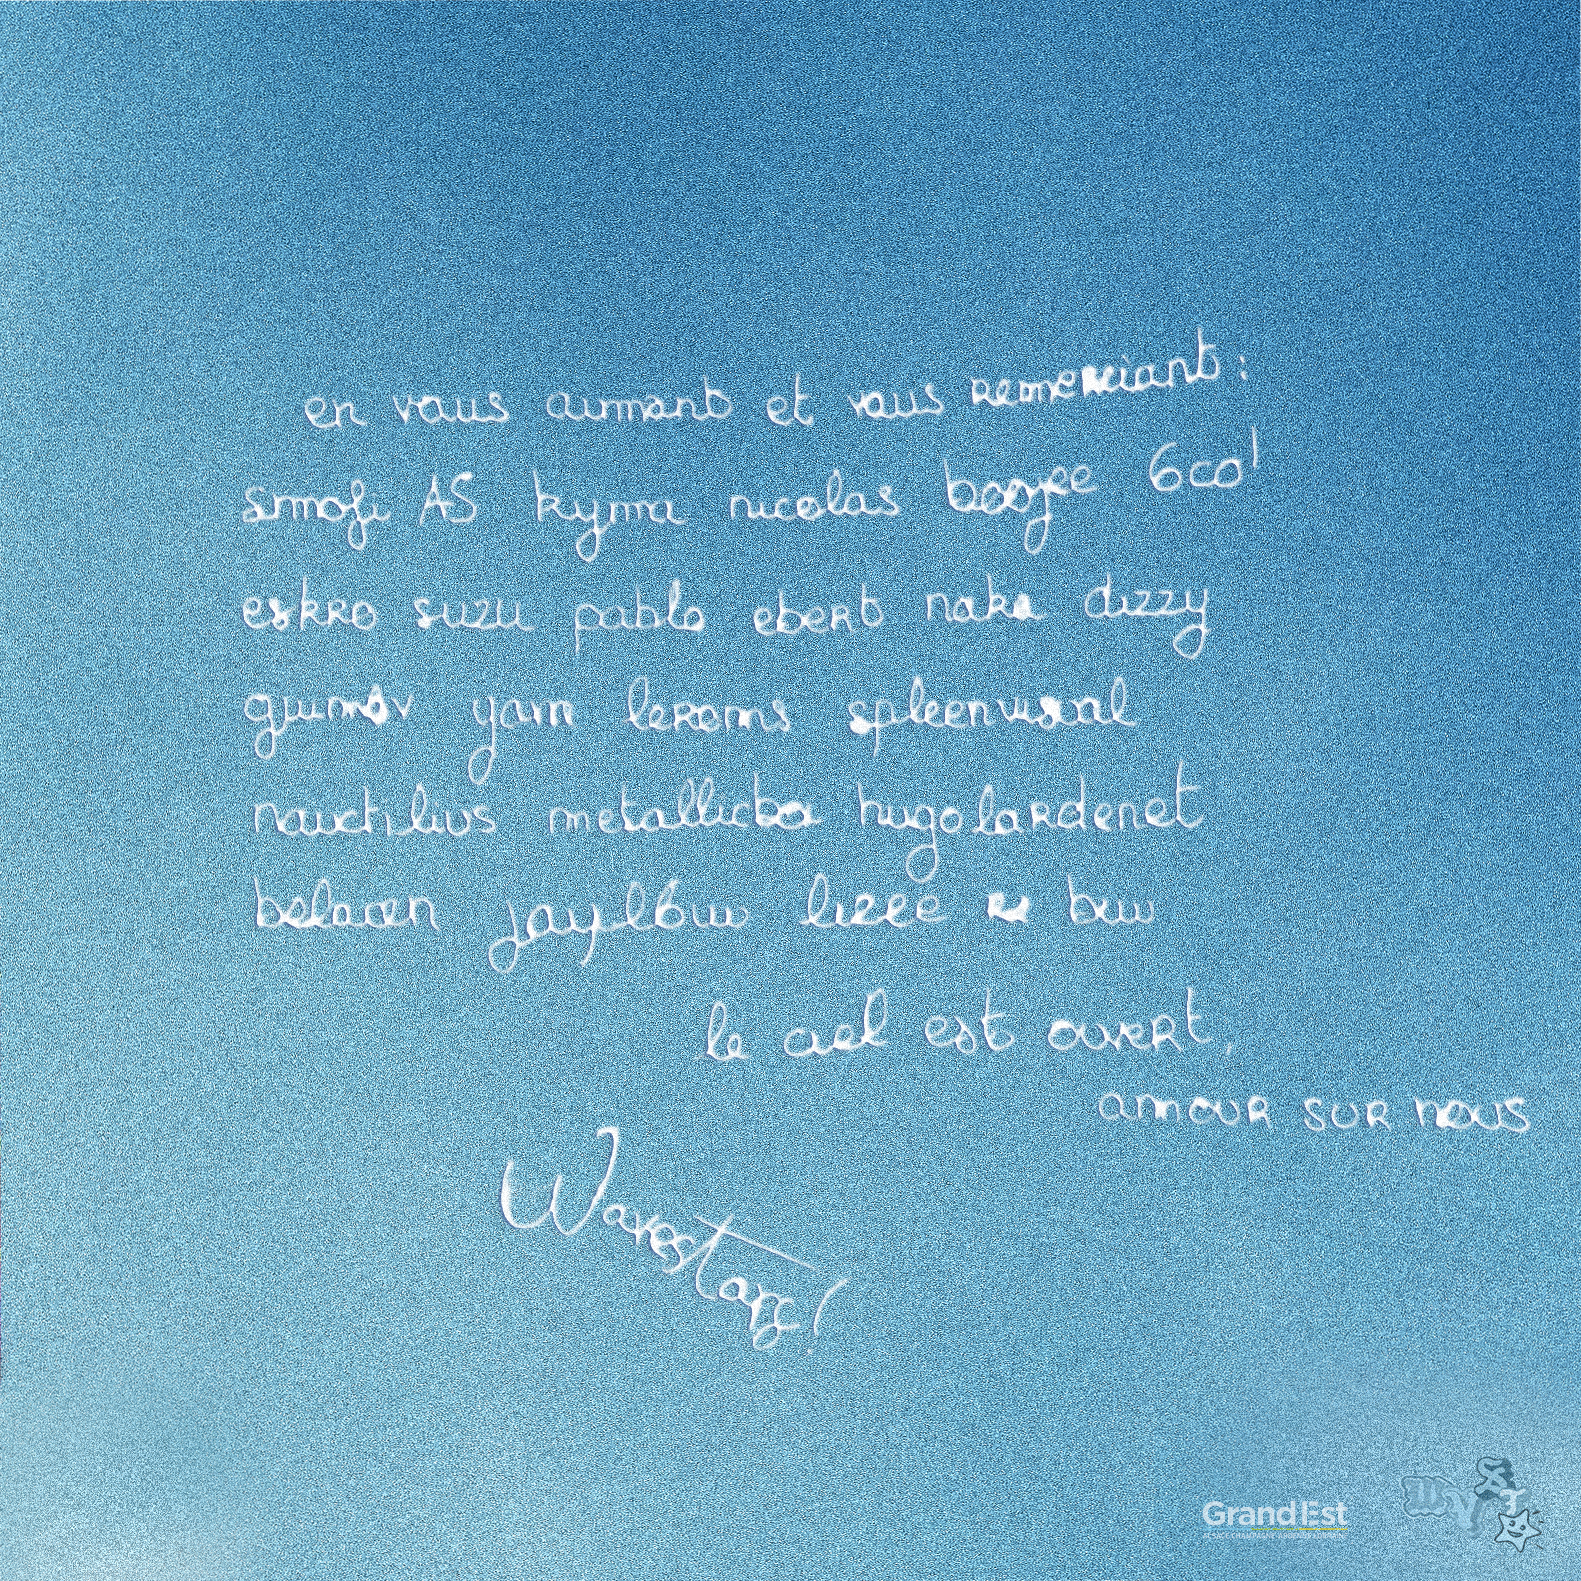 en vous aimant et vous remerciant :
smofi AS kyma nicolas 6co!
eskro suzu pablo ebert naka dizzy
yam leroms spleenvisual
nauctilius metallicba hugolardenet
le ciel est ouvert,
amour sur nous
Wavestarz!
GrandEst
WVST